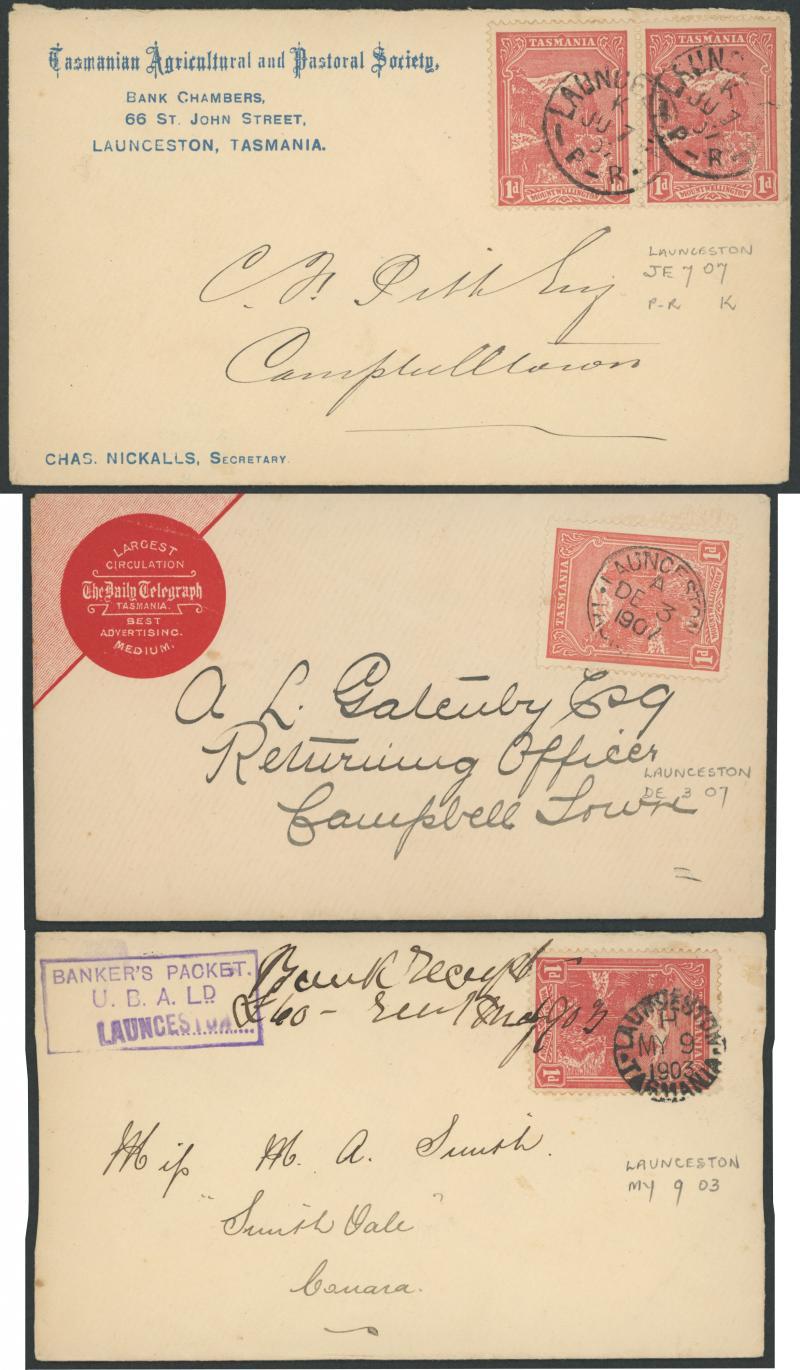 Tasmanian Agricultural and Pastoral Society,
BANK CHAMBERS,
66 ST. JOHN STREET,
LAUNCESTON, TASMANIA.
TASMANIA
1d 1d
MOUNT WELLINGTON
TASMANIA
1d 1d
MOUNT WELLINGTON
LAUNCE
K
JU 7
P-R
LAUNC
K
JU 7
P-R
LAUNCESTON
JE 7 07
P-R K
Esq
Campbelltown
CHAS. NICKALLS, SECRETARY.
LARGEST
CIRCULATION
The Daily Telegraph
TASMANIA.
BEST
ADVERTISING.
MEDIUM.
TASMANIA
1d 1d
LAUNCESTON
A
DE 3
1907
A. L. Gatenby Esq
Returning Officer
Campbell Town
LAUNCESTON
DE 3 07
BANKER'S PACKET.
U. B. A. LD
LAUNCESTON
Bank receipt
£60 - 903
1d 1d
LAUNCESTON
H
MY 9
1903
TASMANIA
Miss M. A. Smith.
"Smith Vale"
Conara.
LAUNCESTON
MY 9 03